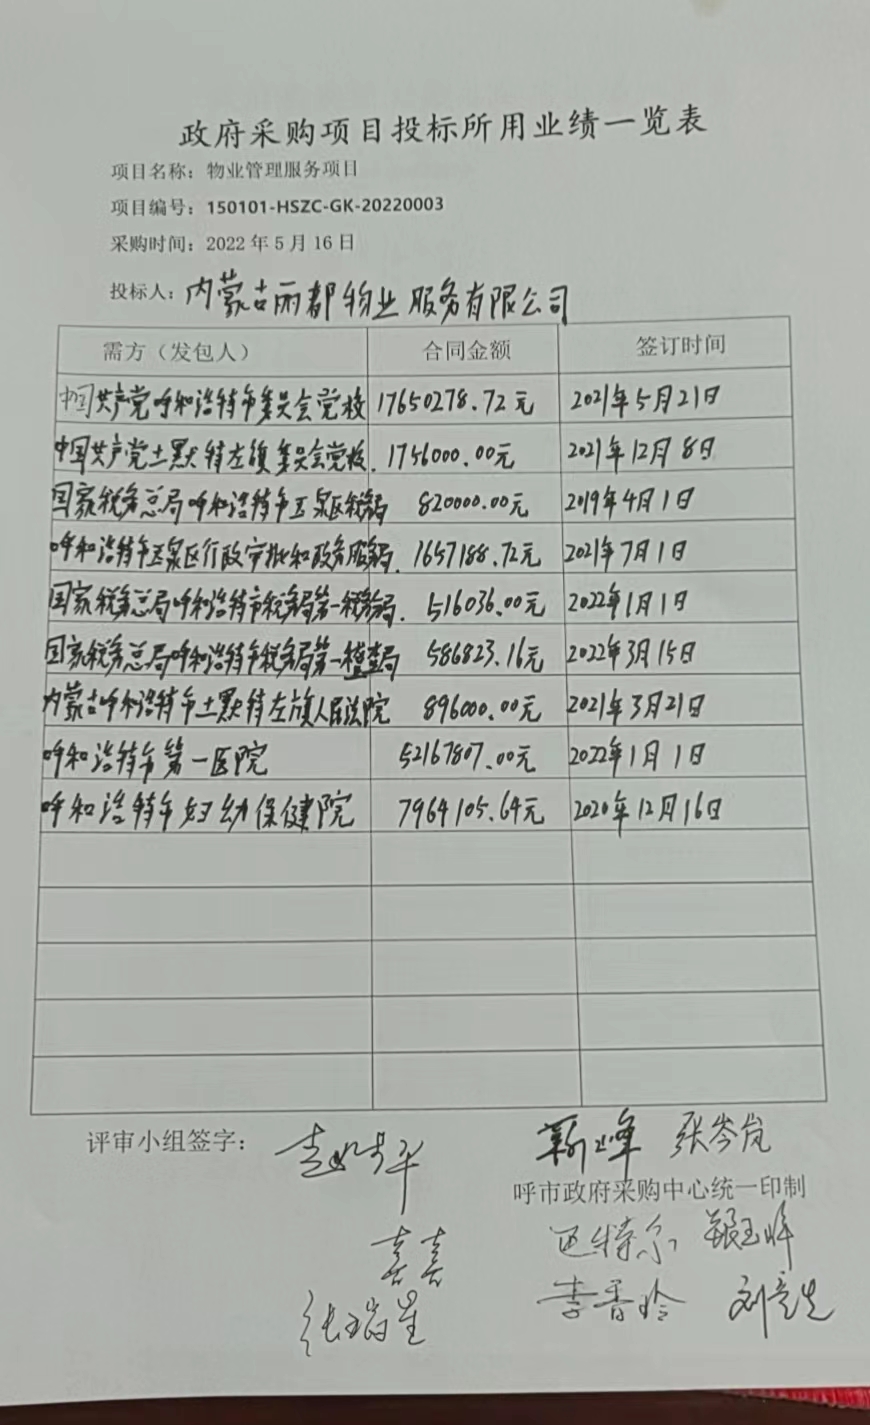 政府采购项目投标所用业绩一览表
项目名称：物业管理服务项目
项目编号：150101-HSZC-GK-20220003
采购时间：2022年5月16日
投标人：内蒙古丽都物业服务有限公司
需方（发包人） 合同金额 签订时间
中国共产党呼和浩特市委员会党校 17650278.72元 2021年5月21日
中国共产党土默特左旗委员会党校. 1756000.00元 2021年12月8日
国家税务总局呼和浩特市玉泉区税务局 820000.00元 2019年4月1日
呼和浩特市玉泉区行政审批和政务服务局. 1657188.72元 2021年7月1日
国家税务总局呼和浩特市税务局第一税务局. 516036.00元 2022年1月1日
国家税务总局呼和浩特市税务局第一稽查局 586823.16元 2022年3月15日
内蒙古呼和浩特市土默特左旗人民法院 896000.00元 2021年3月21日
呼和浩特市第一医院 52167807.00元 2022年1月1日
呼和浩特市妇幼保健院 7964105.64元 2020年12月16日
评审小组签字： 张岑岚
呼市政府采购中心统一印制
李香玲
张瑞星